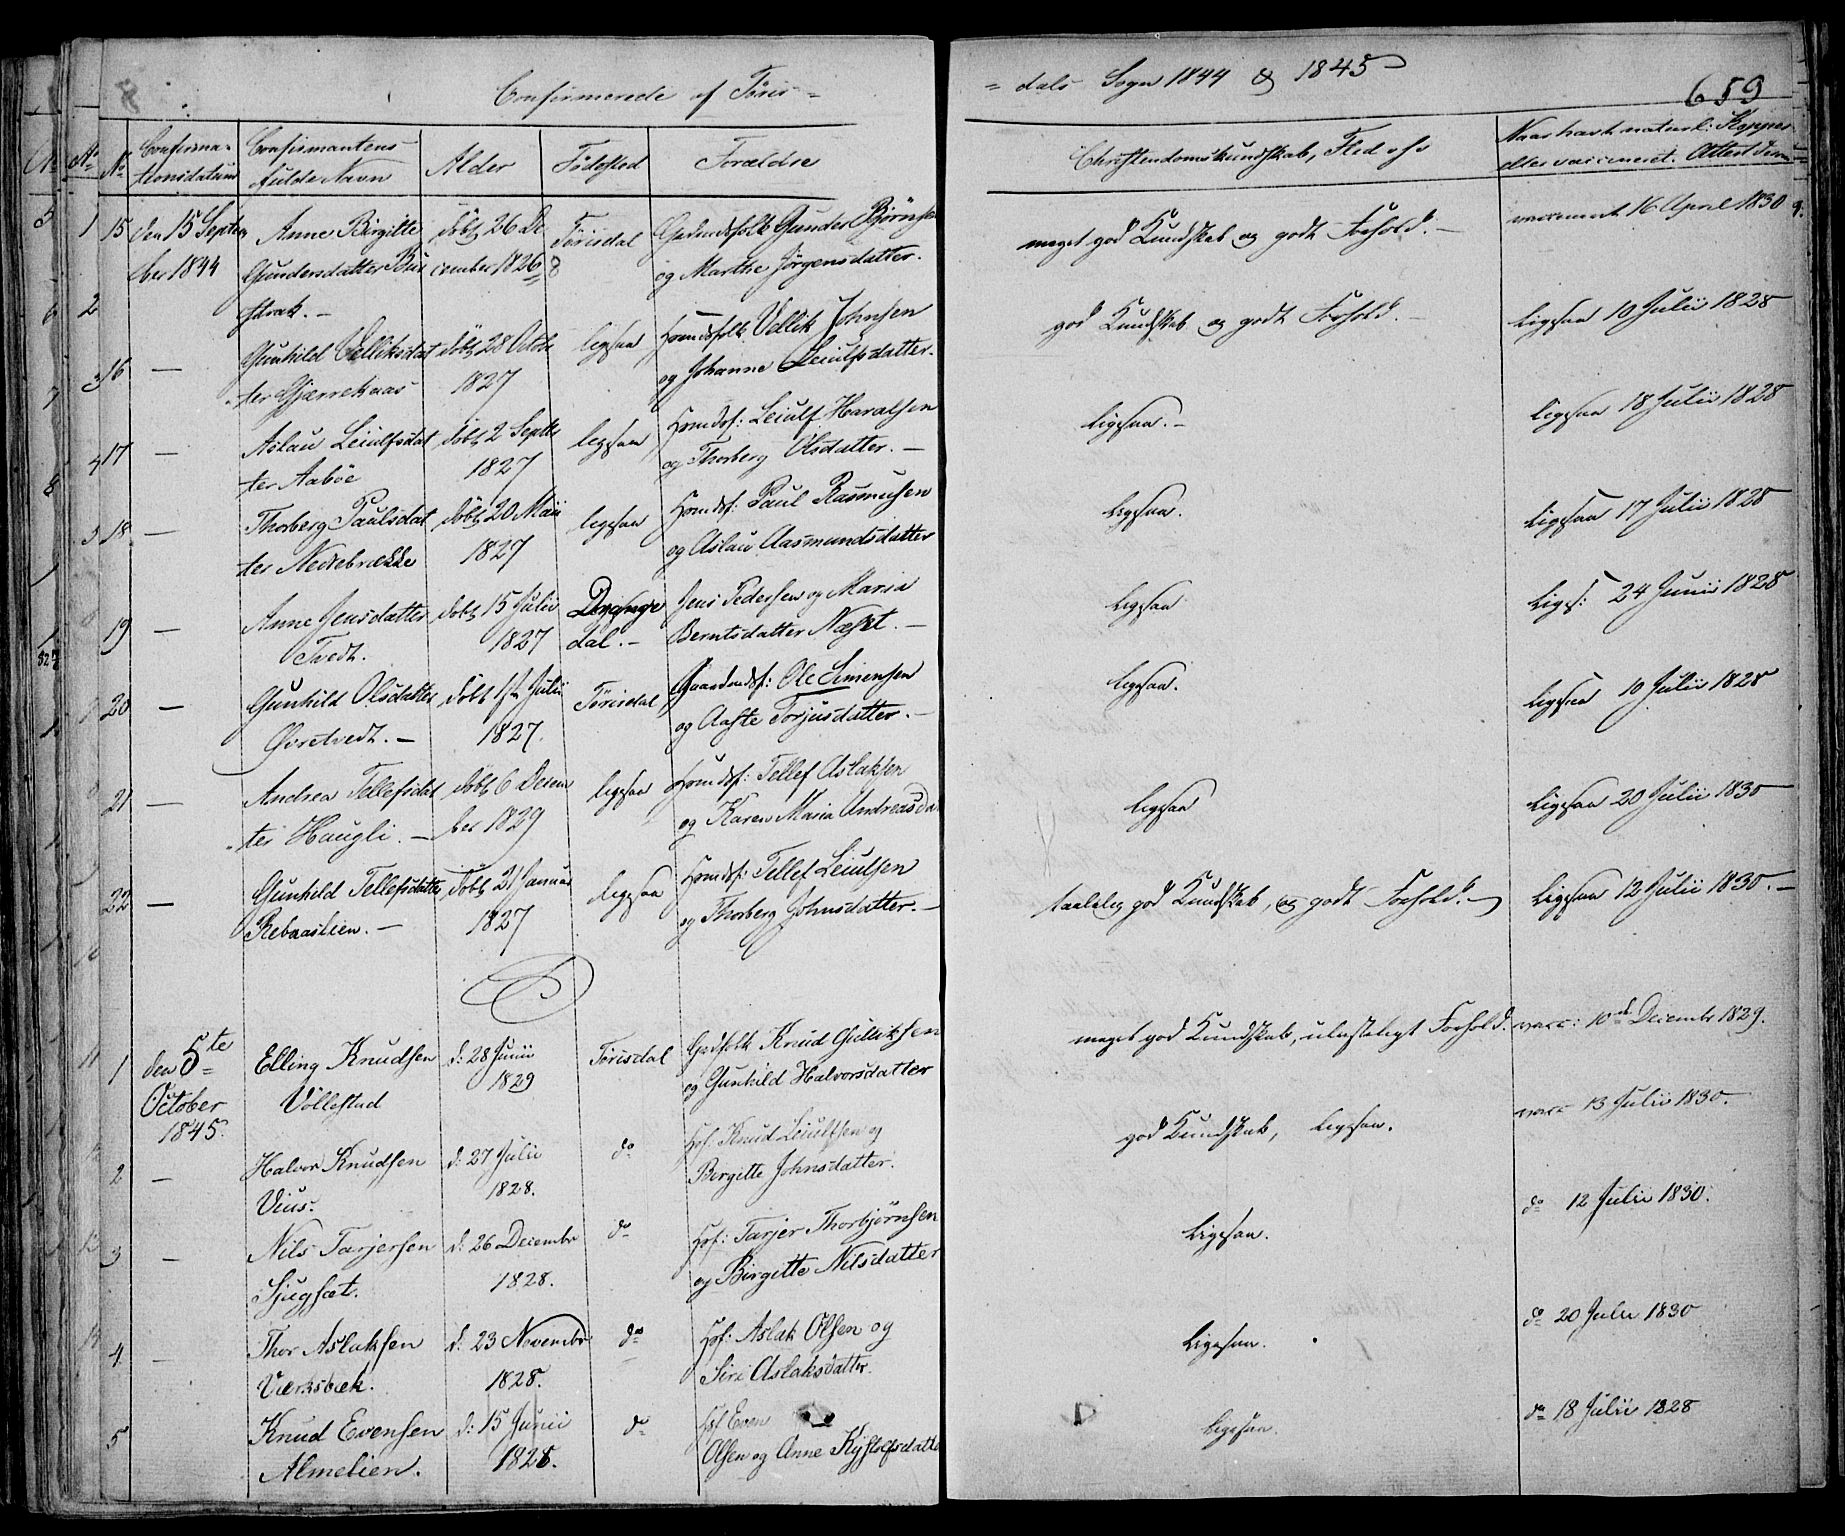 Confirmerede af Tøris=
= dals Sogn 1844 & 1845
659
No
Confirma-
tionsdatum
Confirmantens
fulde Navn
Alder
Fødested
Forældre
Christendomskundskab, Flid ofv
Naar havt naturl: Kopper
eller vaccineret. Attest derom
15
den 15 Septem
ber 1844
Anne Birgitte
Gundersdatter Bus
strak. -
døbt 26 De
cember 1826
Tørisdal
Gaardmdsfolk Gunder Bjørnsen
og Marthe Jørgensdatter.
meget god Kundskab og godt Forhold. -
vaccineret 16 April 1830
16
—
Gunhild Velliksdat
ter Gjærrekaas
døbt 28 Octob
1827
ligesaa
Hmdsfolk Vellik Johnsen
og Johanne Leiulfsdatter.
god Kundskab og godt Forhold. -
Ligesaa 10 Julii 1828
17
—
Aslau Leiulfsdat
ter Aabøe
døbt 2 Septbr
1827
ligesaa
Hmdsf: Leiulf Haralsen
og Thorberg Olsdatter. -
Ligesaa. -
Ligesaa 18 Julii 1828
18
—
Thorberg Paulsdat
ter Nedrebrække
døbt 20 Maii
1827
ligesaa
Hmdsf: Paul Rasmusen
og Aslau Aasmundsdatter
Ligesaa.
Ligesaa 17 Julii 1828
19
—
Anne Jensdatter
Tvedt.
døbt 15 Julii
1827
Drange
dal. -
Jens Pedersen og Maria
Berntsdatter Næset. -
Ligesaa
Liges: 24 Junii 1828
20
—
Gunhild Olsdatter
Øvretvedt. -
døbt 1ste Julii
1827.
Tørisdal
Gaardmdsf: Ole Simensen
og Aaste Torjusdatter. -
Ligesaa.
Ligesaa 10 Julii 1828
21
—
Andrea Tellefsdat
ter Haugli. -
døbt 6 Decem
ber 1829
ligesaa
Hmdsf: Tellef Aslaksen
og Karen Maria Andreasda
Ligesaa
Ligesaa 20 Julii 1830
22
—
Gunhild Tellefsdatter
Rebaaslien. -
døbt 21 Januar
1827
ligesaa
Hmdsf: Tellef Leiulsen
og Thorberg Johnsdatter. -
taalelig god Kundskab, og godt Forhold. -
Ligesaa 12 Julii 1830. -
1
den 5te
October
1845.
Elling Knudsen
Vøllestad
d: 28 Junii
1829
Tørisdal
Gdfolk Knud Gulliksen
og Gunhild Halvorsdatter
meget god Kundskab, ulasteligt Forhold.
vacc: 10de Decembr 1829.
2
—
Halvor Knudsen
Vius.
d: 27 Julii
1828.
do
Hsf: Knud Leiulfsen og
Birgitte Johnsdatter.
god Kundskab, Ligesaa.
vacc 13 Julii 1830.
3
—
Nils Tarjersen
Sjugsæt.
d: 26 Decembr
1828.
do
Hsf: Tarjer Thorbjørnsen
og Birgitte Nilsdatter
Ligesaa.
do 12 Julii 1830.
4
—
Thor Aslaksen
Værksbæk.
d: 23 Novembr
1828.
do
Hsf: Aslak Olsen og
Siri Aslaksdatter.
Ligesaa.
do 20 Julii 1830
5
Knud Evensen
Almelien.
d: 15 Junii
1828.
do
Hsf Even
Olsen og Anne Kjstolsdatte
Ligesaa.
do 18 Julii 1828